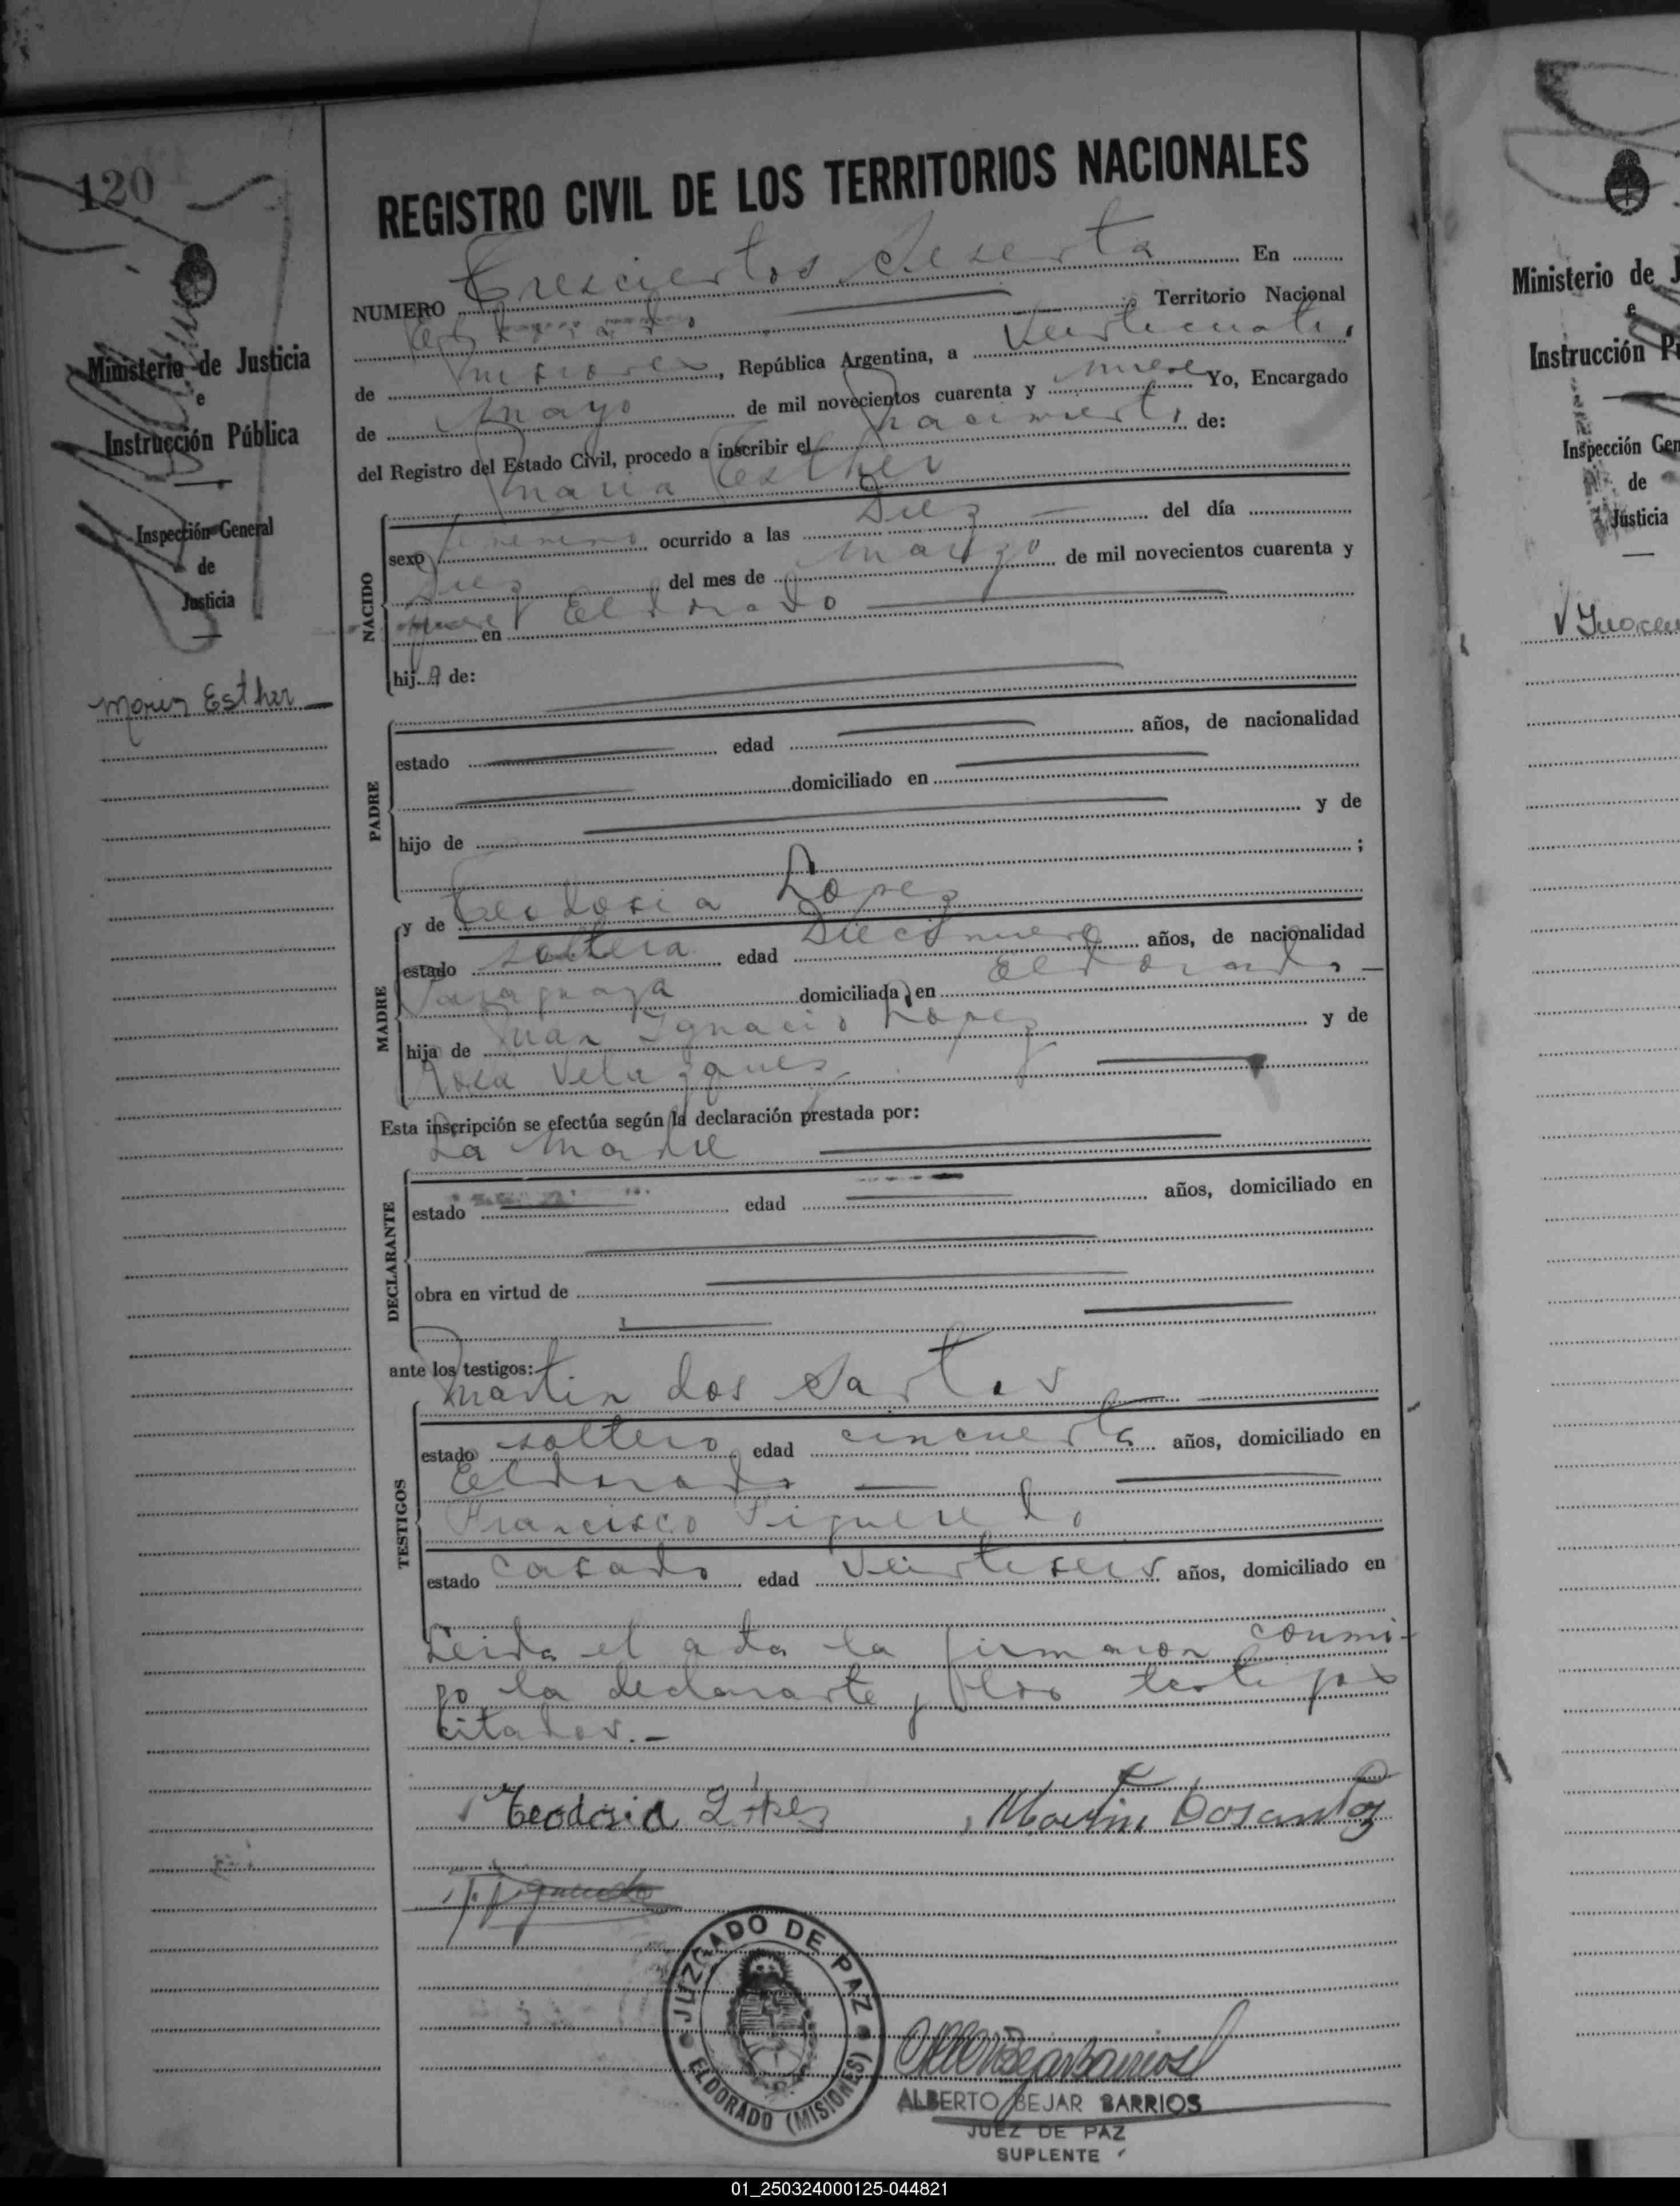 120
REGISTRO CIVIL DE LOS TERRITORIOS NACIONALES
NUMERO Trescientos Sesenta En
Eldorado Territorio Nacional
de Misiones, República Argentina, a Veinticuatro
de Mayo de mil novecientos cuarenta y nueve Yo, Encargado
del Registro del Estado Civil, procedo a inscribir el nacimiento de:
Maria Esther
NACIDO
sexo femenino ocurrido a las Diez del día
Diez del mes de Marzo de mil novecientos cuarenta y
nueve en Eldorado
hija de:
PADRE
estado edad años, de nacionalidad
domiciliado en
hijo de y de
;
MADRE
y de Teodosia Lopez
estado soltera edad Diecinueve años, de nacionalidad
Paraguaya domiciliada en Eldorado
hija de Juan Ignacio Lopez y de
Rosa Velazquez
Esta inscripción se efectúa según la declaración prestada por:
La Madre
DECLARANTE
estado edad años, domiciliado en
obra en virtud de
ante los testigos:
Martin dos Santos
TESTIGOS
estado soltero edad cincuenta años, domiciliado en
Eldorado
Francisco Figueredo
estado casado edad Veintiseis años, domiciliado en
Leida el acta la firmaron conmi-
go la declarante y los testigos
citados.-
Teodosia López Martin Dosantos
JUZGADO DE PAZ
ELDORADO (MISIONES)
ALBERTO BEJAR BARRIOS
JUEZ DE PAZ
SUPLENTE
Ministerio de Justicia
e
Instrucción Pública
Inspección General
de
Justicia
Maria Esther
Ministerio de J
e
Instrucción P
Inspección Gen
de
Justicia
01_250324000125-044821